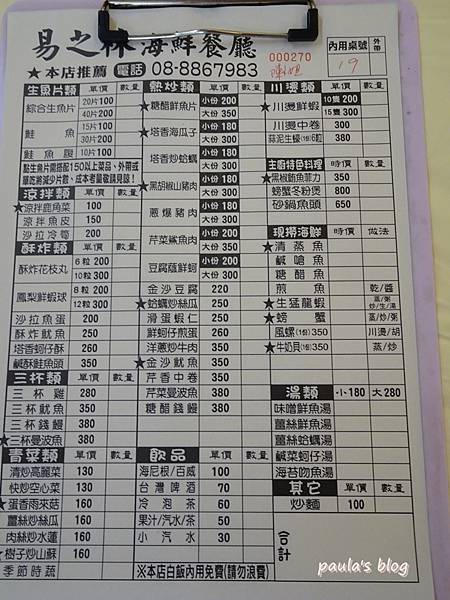 易之林海鮮餐廳
★本店推薦 電話 08-8867983
000270
內用桌號 外帶
19
生魚片類 單價 數量
綜合生魚片 20片100
40片200
鮭魚 15片100
30片200
鮭魚腹 10片100
點生魚片需搭配150以上菜品、外帶或
單吃將減少片數、成本考量敬請見諒!
涼拌類 單價 數量
★涼拌鹿角菜 100
涼拌魚皮 150
沙拉冷筍 200
酥炸類 單價 數量
酥炸花枝丸 6粒200
10粒300
鳳梨鮮蝦球 8粒200
12粒300
沙拉魚蛋 200
酥炸魷魚 250
塔香蚵仔酥 260
鹹酥鮭魚頭 350
三杯類 單價 數量
三杯雞 280
三杯魷魚 350
三杯錢鰻 380
★三杯曼波魚 380
青菜類 單價 數量
清炒高麗菜 130
快炒空心菜 130
★蛋香雨來菇 160
薑絲炒絲瓜 160
肉絲炒水蓮 160
★樹子炒山蘇 160
季節時蔬
熱炒類 單價 數量
★糖醋鮮魚片 小份200
大份300
★塔香海瓜子 小份180
大份300
塔香炒蛤蠣 小份180
大份300
★黑胡椒山豬肉 小份200
大份300
蔥爆豬肉 小份180
大份300
芹菜鯊魚肉 小份200
大份350
豆腐蔭鮮蚵 小份200
大份300
金沙豆腐 220
★蛤蠣炒絲瓜 250
滑蛋蝦仁 250
鮮蚵仔煎蛋 260
洋蔥炒牛肉 350
★金沙魷魚 350
芹香中卷 350
芹菜曼波魚 380
糖醋錢鰻 380
飲品 單價 數量
海尼根/百威 100
台灣啤酒 70
冷泡茶 60
果汁/汽水/茶 50
小汽水 30
※本店白飯內用免費(請勿浪費)
川燙類 單價 數量
★川燙鮮蝦 10隻200
15隻300
川燙中卷 300
蒜泥生蠔(1份)6粒 380
主廚特色料理 時價 數量
★黑椒鮪魚菲力 350
螃蟹冬粉煲 800
砂鍋魚頭 650
現撈海鮮 時價 做法
★清蒸魚
鹹嗆魚
糖醋魚
煎魚 乾/醬
★生猛龍蝦 蒸/粥
炒/生/湯
★螃蟹 蒸/炒/粥
風螺(1份)350 川燙/胡
★牛奶貝(1份)350 蒸/炒
湯類 小180 大280
味噌鮮魚湯
薑絲鮮魚湯
薑絲蛤蠣湯
鹹菜蚵仔湯
海苔吻魚湯
其它 單價 數量
炒麵 100
合計
paula's blog